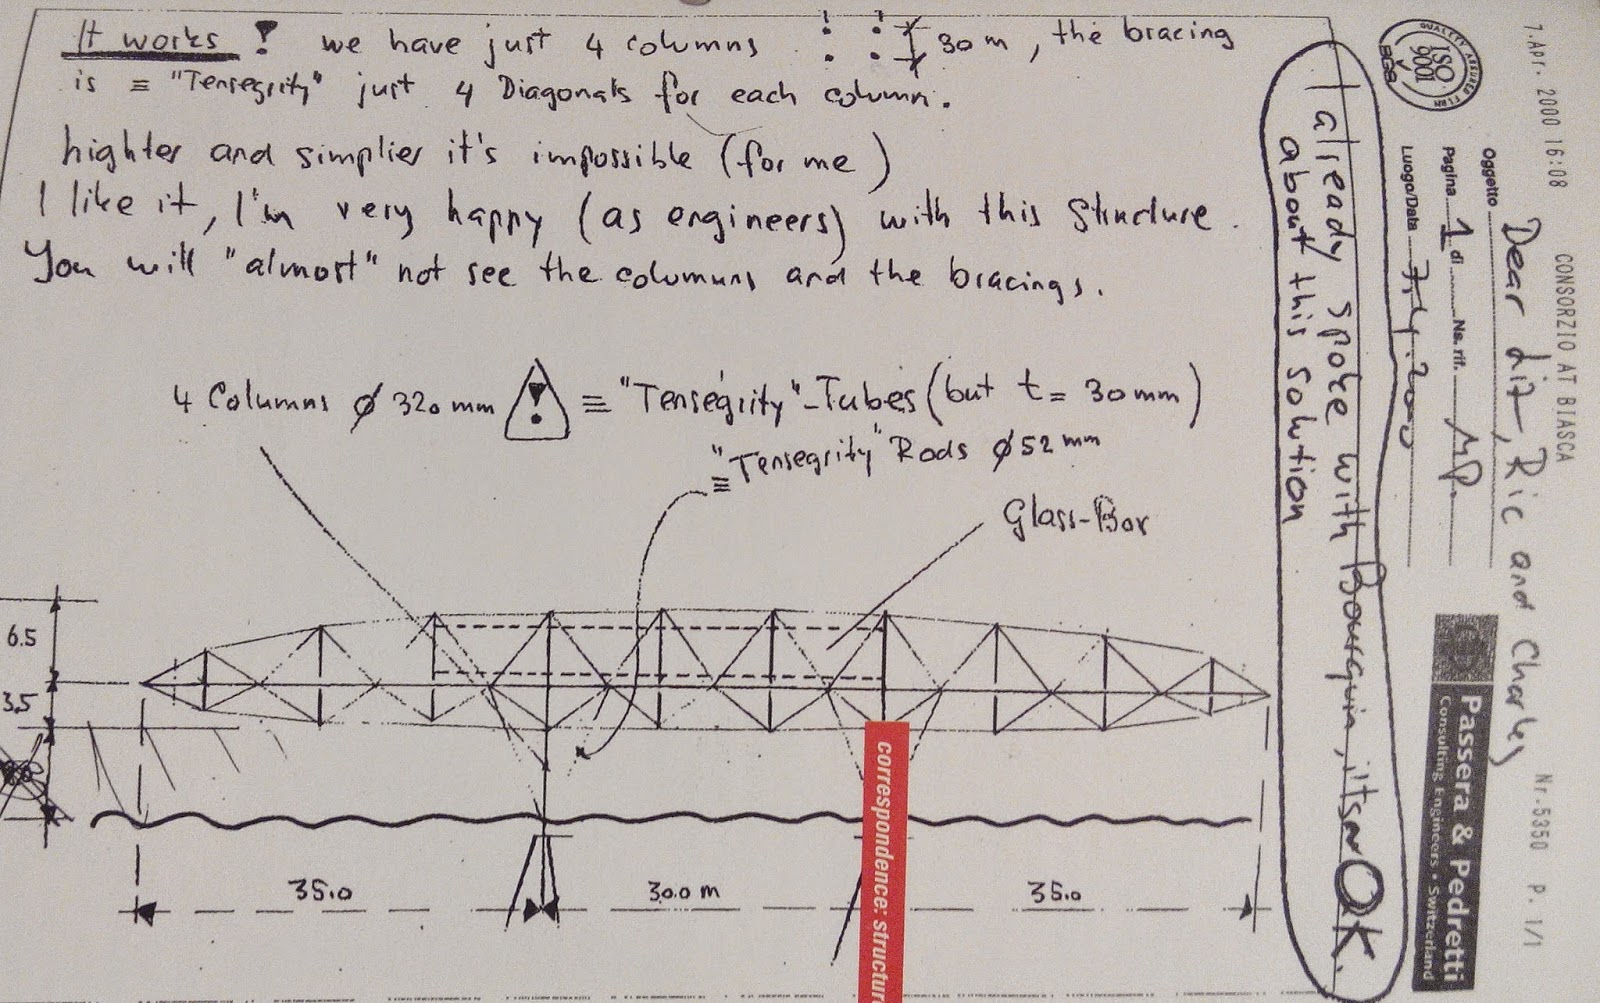 It works ! we have just 4 columns 30 m, the bracing
is ≡ "Tensegrity" just 4 Diagonals for each column.
highter and simplier it's impossible (for me)
I like it, I'm very happy (as engineers) with this Structure.
You will "almost" not see the columns and the bracings.
4 Columns ø 320 mm ! ≡ "Tensegrity"-Tubes (but t = 30 mm)
≡ "Tensegrity" Rods ø 52 mm
Glass-Box
6.5
3.5
35.0
30.0 m
35.0
correspondence: structur
I already spoke with Bourquin, it's OK.
about this solution
7.Apr. 2000 16:08 CONSORZIO AT BIASCA Nr.5350 P. 1/1
Oggetto Dear Lit, Ric and Charley
Pagina 1 di Ns. rif. MP.
Luogo/Data 7.4.2000
QUALITY ASSURED FIRM
ISO
9001
SGS
Passera & Pedretti
Consulting Engineers • Switzerland